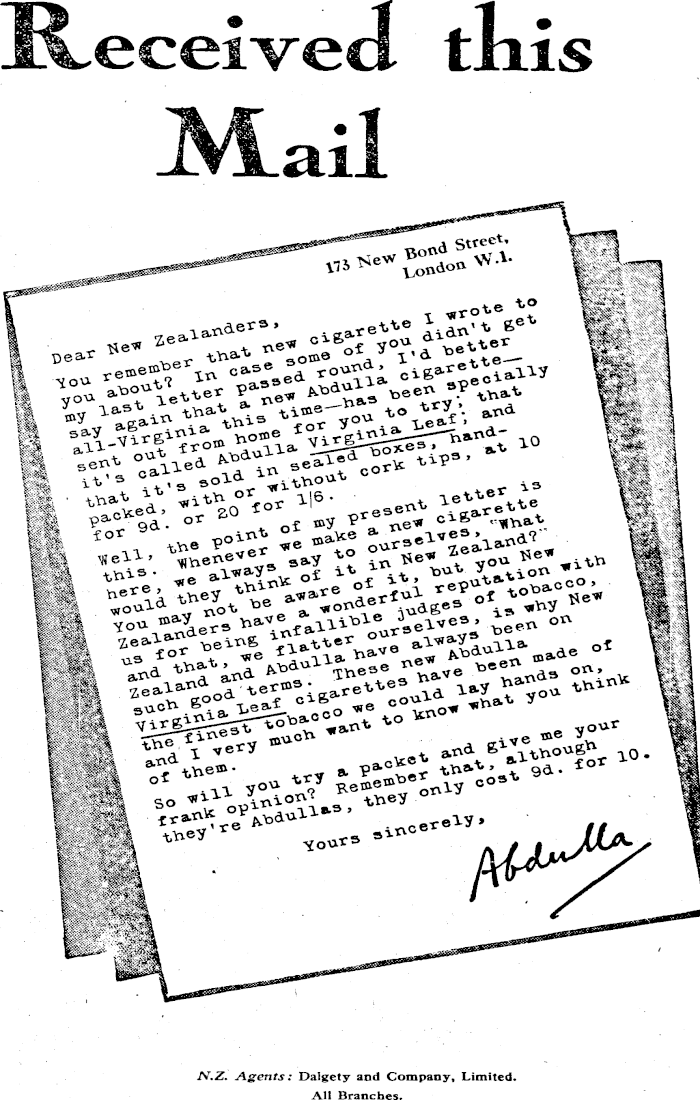 Received this
Mail
173 New Bond Street,
London W.1.
Dear New Zealanders,
You remember that new cigarette I wrote to
you about? In case some of you didn't get
my last letter passed round, I'd better
say again that a new Abdulla cigarette—
all-Virginia this time—has been specially
sent out from home for you to try; that
it's called Abdulla Virginia Leaf; and
that it's sold in sealed boxes, hand-
packed, with or without cork tips, at 10
for 9d. or 20 for 1/6.
Well, the point of my present letter is
this. Whenever we make a new cigarette
here, we always say to ourselves, "What
would they think of it in New Zealand?"
You may not be aware of it, but you New
Zealanders have a wonderful reputation with
us for being infallible judges of tobacco,
and that, we flatter ourselves, is why New
Zealand and Abdulla have always been on
such good terms. These new Abdulla
Virginia Leaf cigarettes have been made of
the finest tobacco we could lay hands on,
and I very much want to know what you think
of them.
So will you try a packet and give me your
frank opinion? Remember that, although
they're Abdullas, they only cost 9d. for 10.
Yours sincerely,
Abdulla
N.Z. Agents: Dalgety and Company, Limited.
All Branches.